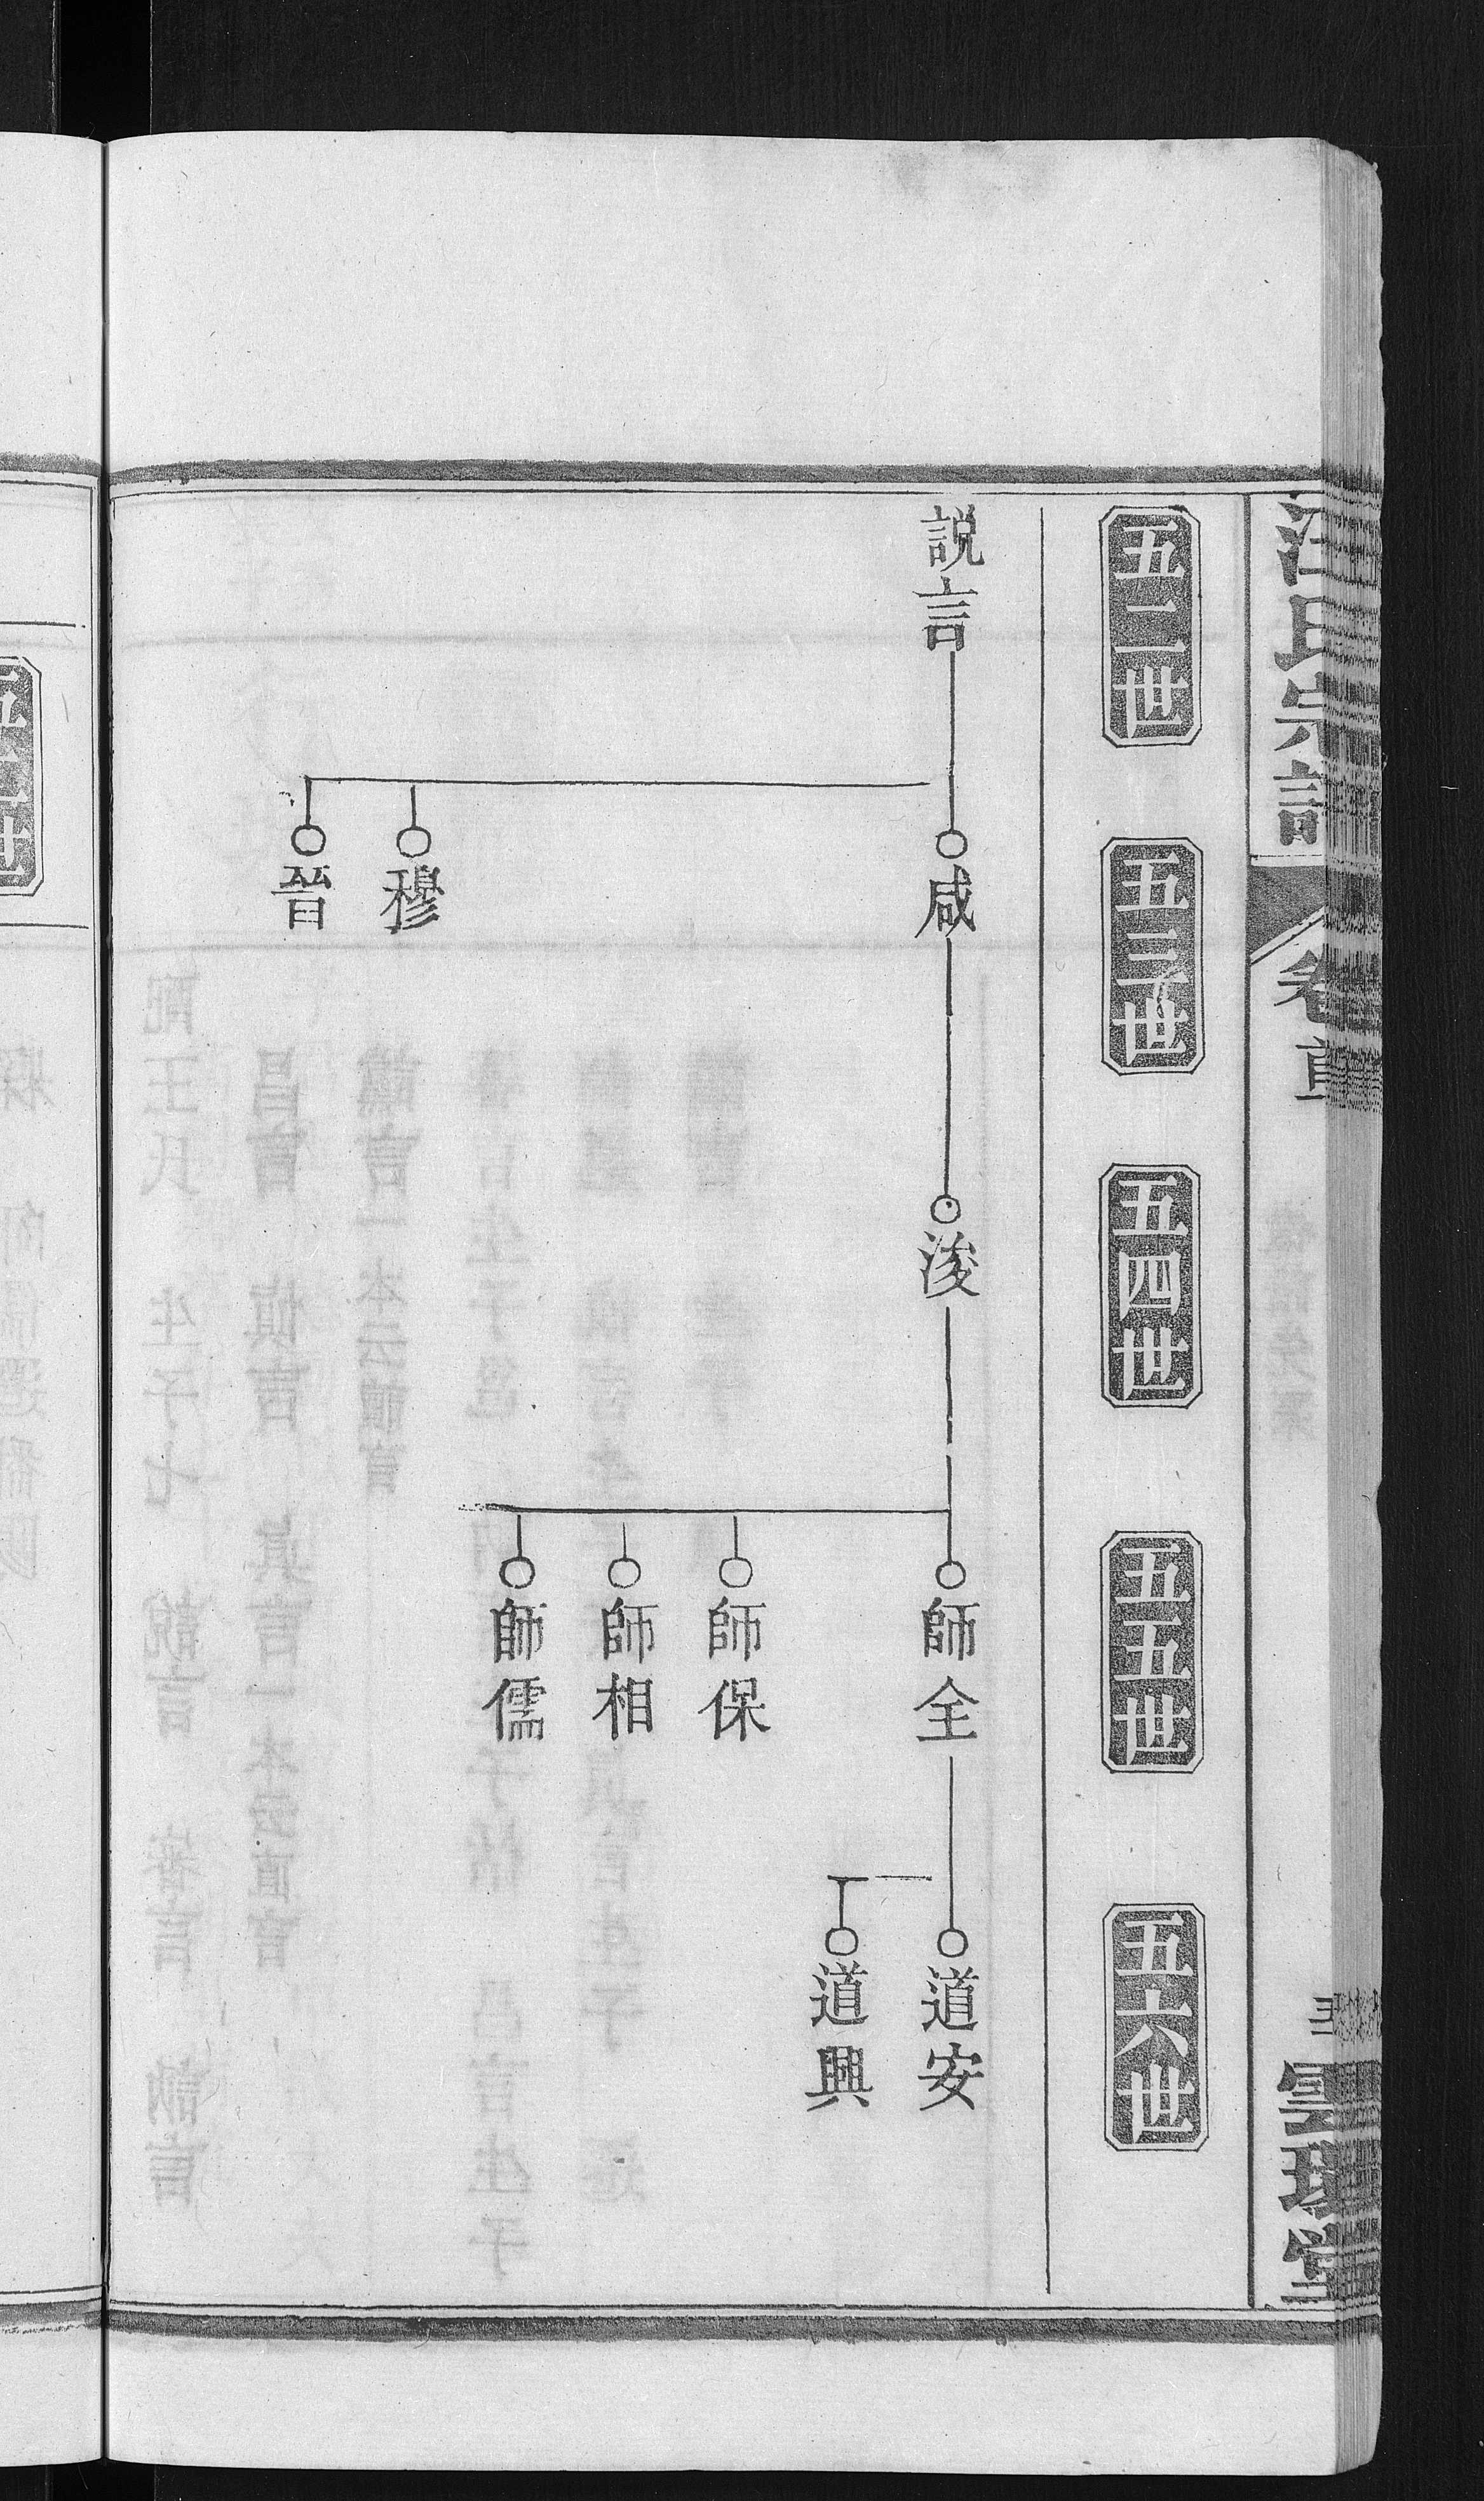 汪氏宗譜
卷首
五二世
五三世
五四世
五五世
五六世
説言
咸
浚
師全
道安
道興
師保
師相
師儒
穆
晉